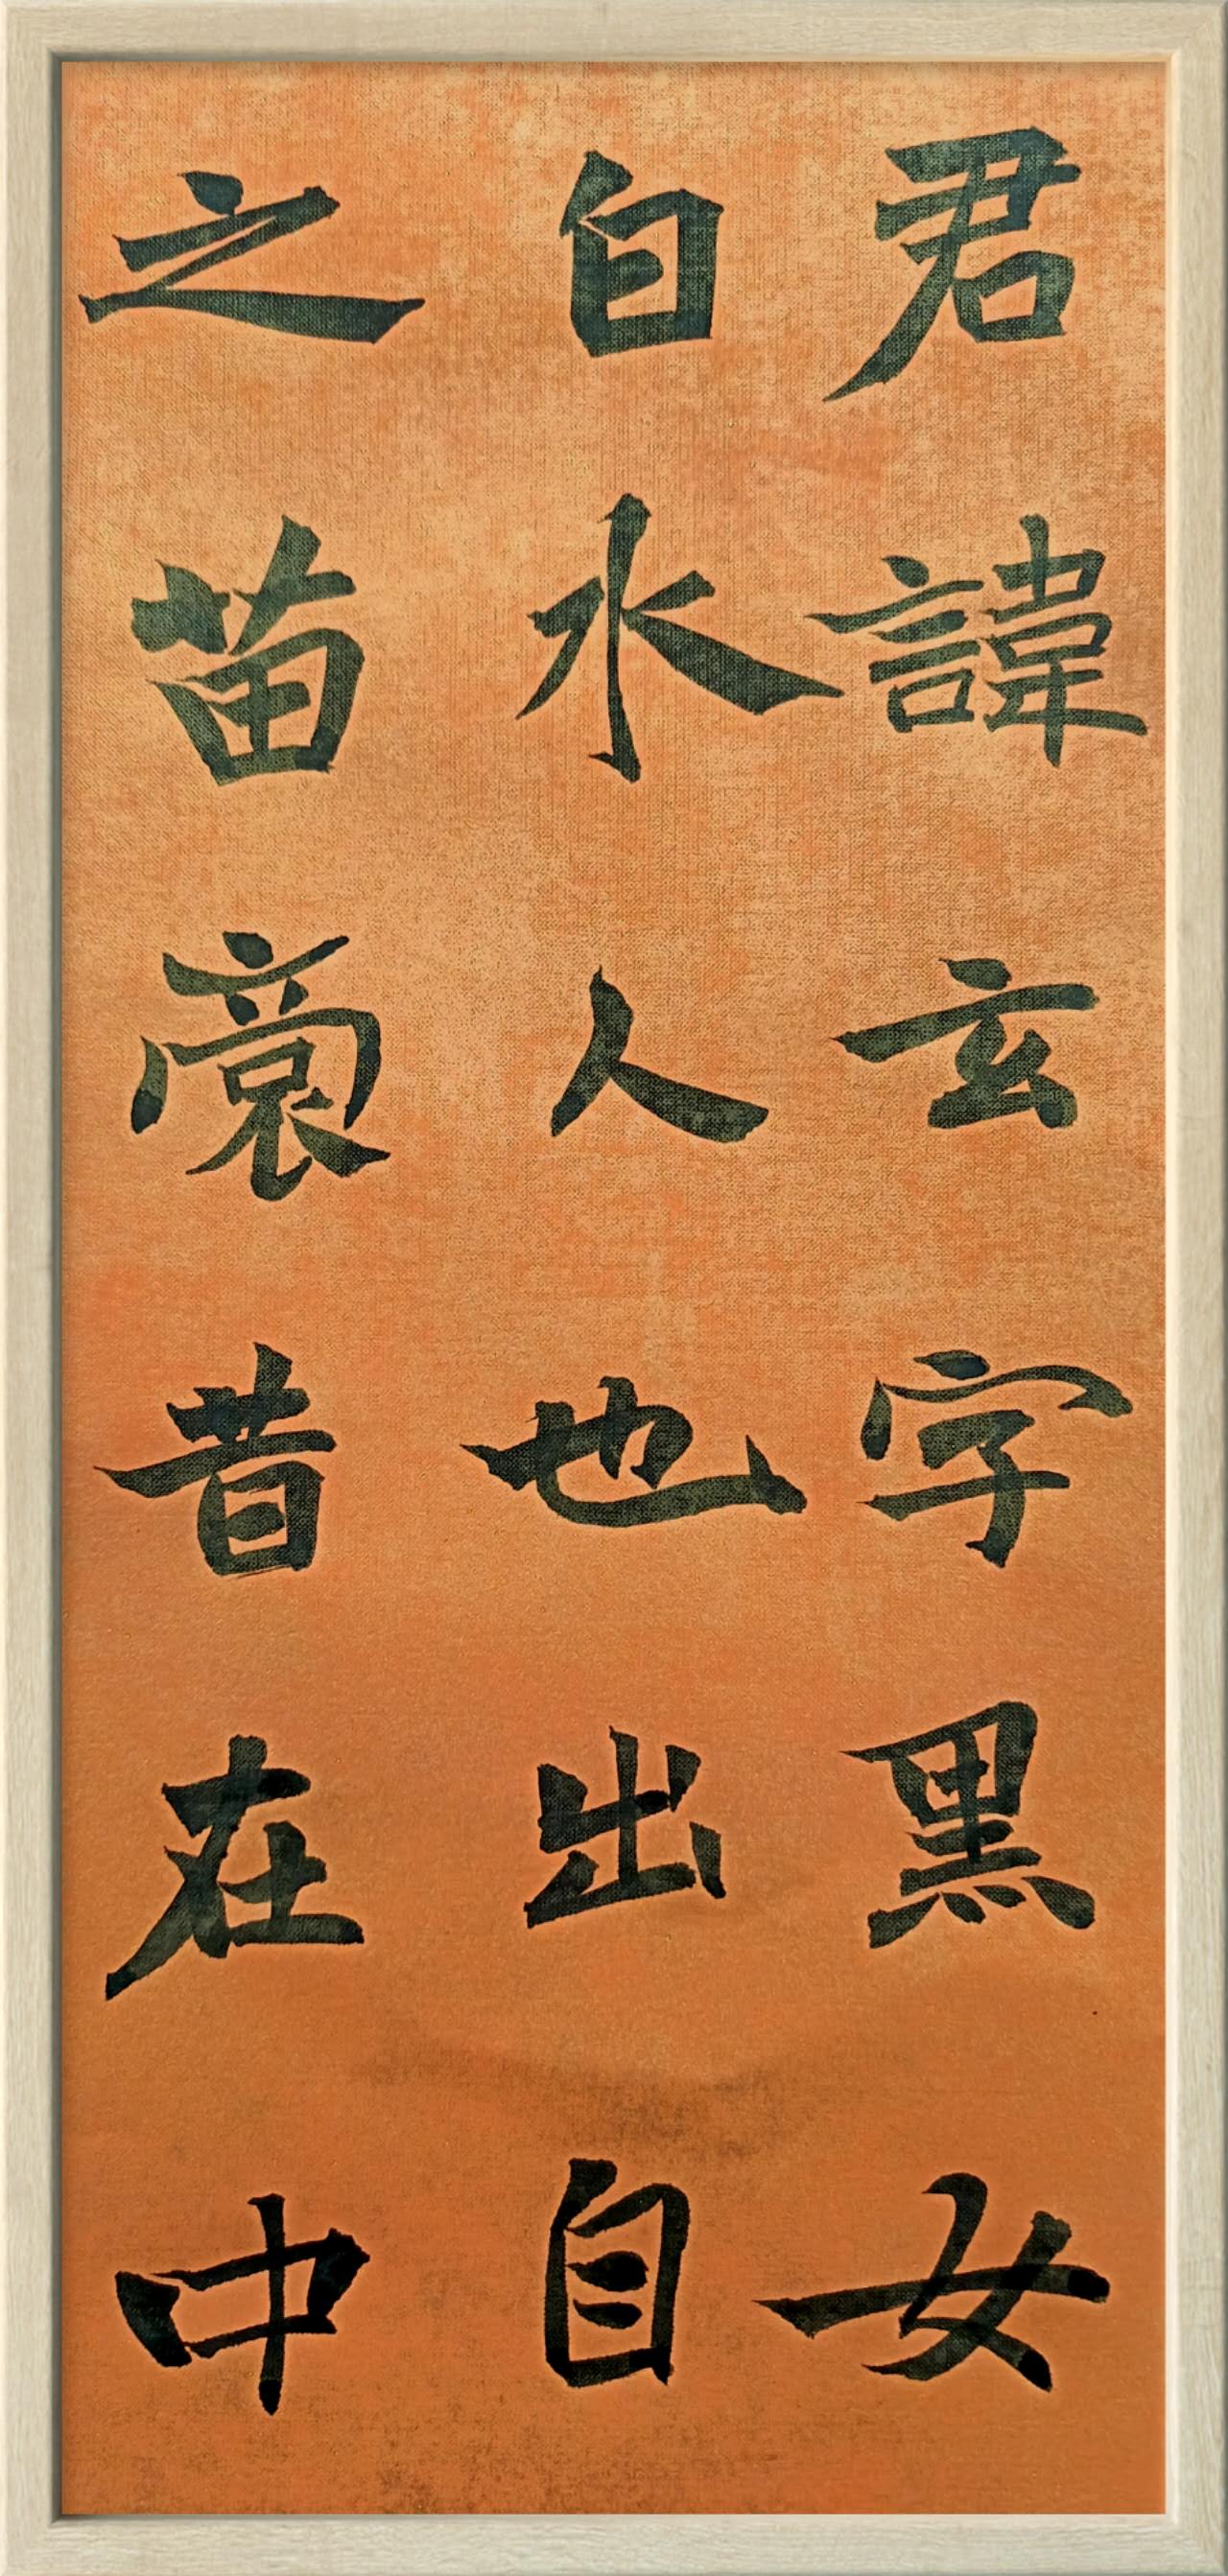 君諱玄字黑女
白水人也出自
之苗裔昔在中